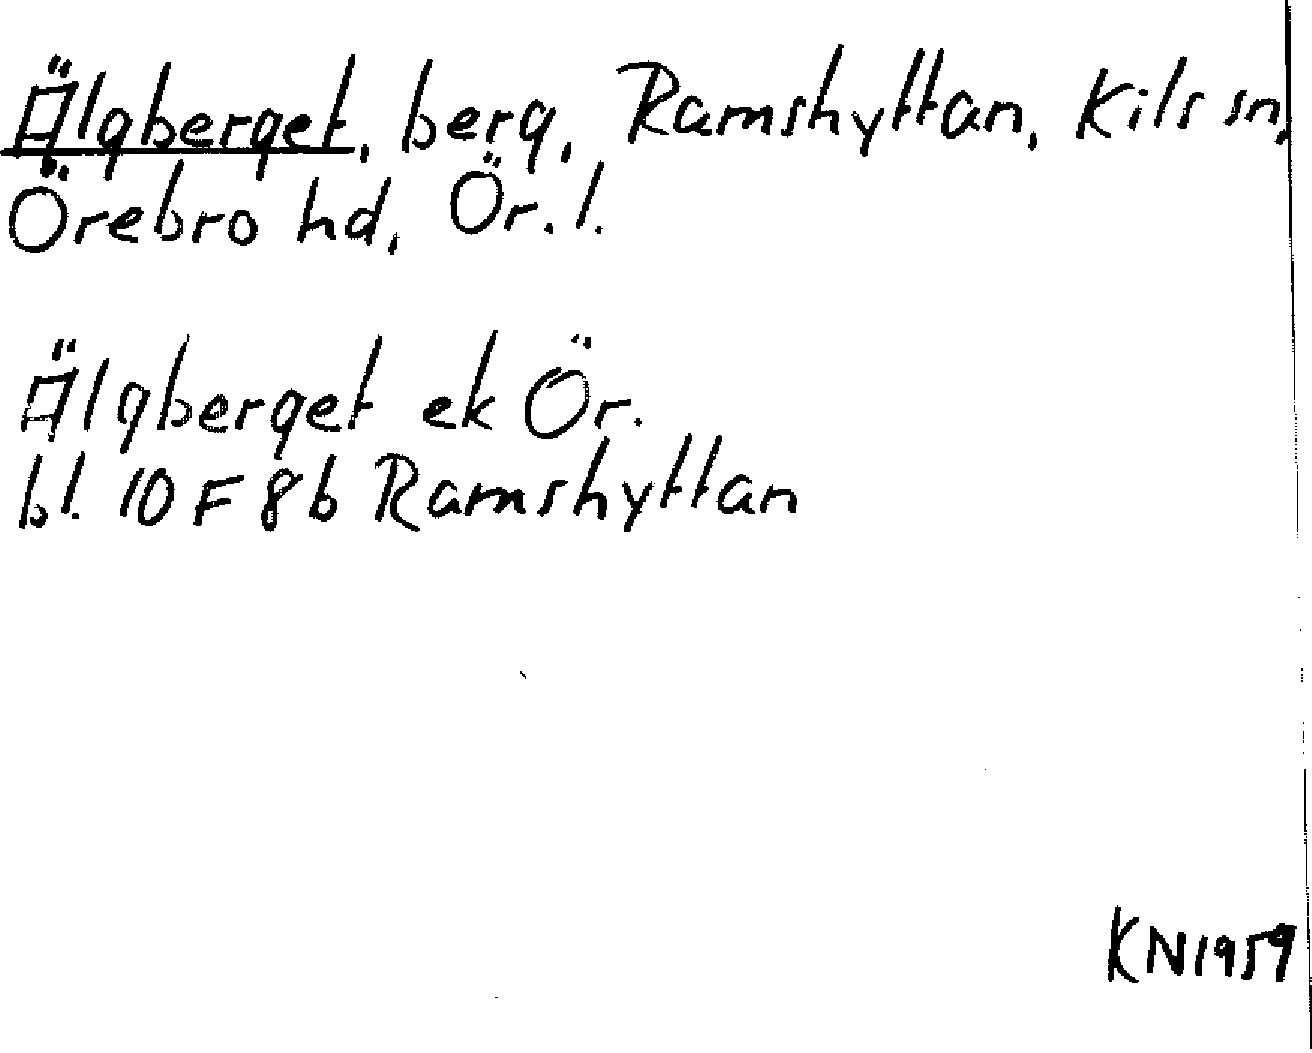 Älgberget, berg, Ramshyttan, Kils sn,
Örebro hd, Ör. l.
Älgberget ek Ör.
bl. 10 F 8b Ramshyttan
KN1959